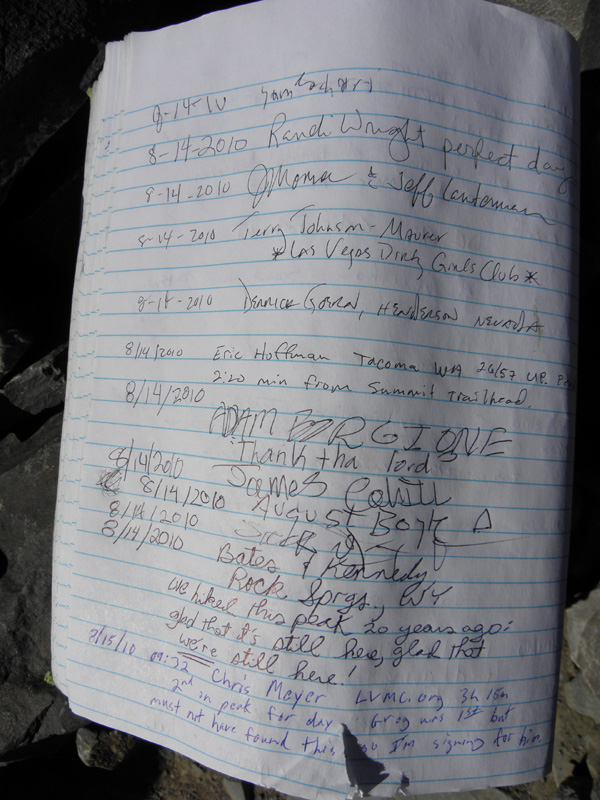 8-14-10 Sam
8-14-2010 Randi Wright perfect day
8-14-2010 JMoma & Jeff Lanterman
8-14-2010 Terry Johnson-Maurer
*Las Vegas Dirty Girls Club*
8-14-2010 Derrick HENDERSON NEVADA
8/14/2010 Eric Hoffman Tacoma WA 26/57 UP.
2:20 min from Summit Trailhead.
8/14/2010
ADAM BORGIONE
Thank tha lord
8/14/2010 James Cahill
8/14/2010 AUGUST
8/14/2010
8/14/2010 Bates & Kennedy
Rock Sprgs., WY
we hiked this peak 20 years ago:
glad that it's still here, glad that
we're still here!
8/15/10 09:32 Chris Meyer LVMC.org 3h 15m
2nd on peak for day. Greg was 1st but
must not have found this so I'm signing for him.